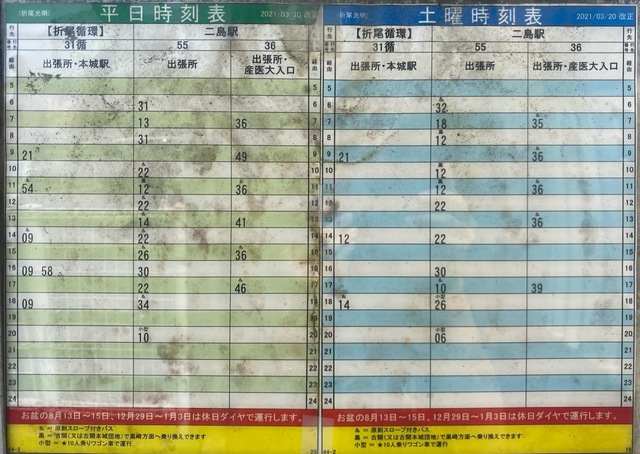 (折尾光明) 平日時刻表 2021/03/20 改正
行先 【折尾循環】 二島駅
行先番号 31循 55 36
経由 出張所・本城駅 出張所 出張所・産医大入口
5
6 31
7 13 36
8 31
9 21 49
10 & 22
11 & 54 黒 12 & 36
12 22
13 & 14 41
14 & 09 & 22
15 & 26 & 36
16 09 58 30
17 22 & 46
18 09 & 34
19
20 小型 10
21
22
23
24
お盆の8月13日~15日、12月29日~1月3日は休日ダイヤで運行します。
& = 原則スロープ付きバス
黒 = 古関(又は古関本城団地)で黒崎方面へ乗り換えできます
小型 = ★10人乗りワゴン車で運行
(折尾光明) 土曜時刻表 2021/03/20 改正
行先 【折尾循環】 二島駅
行先番号 31循 55 36
経由 出張所・本城駅 出張所 出張所・産医大入口
5
6 & 32
7 18 & 35
8 黒 12
9 21 & 36
10 黒 12
11 黒 12 & 36
12 22
13 & 36
14 12 22
15
16 30
17 & 10 39
18 & 14 小型 26
19
20 小型 06
21
22
23
24
お盆の8月13日~15日、12月29日~1月3日は休日ダイヤで運行します。
& = 原則スロープ付きバス
黒 = 古関(又は古関本城団地)で黒崎方面へ乗り換えできます
小型 = ★10人乗りワゴン車で運行
44-2